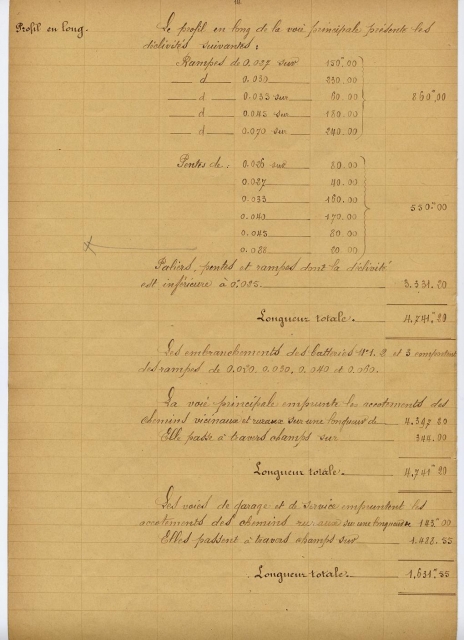 Profil en long.
Le profil en long de la voie principale présente les
déclivités suivantes :
Rampes de 0.027 sur 130.00
d 0.030 250.00
d 0.033 sur 60.00
d 0.045 sur 180.00
d 0.070 sur 240.00
860.00
Pentes de : 0.026 sur 80.00
0.027 40.00
0.033 160.00
0.040 170.00
0.045 80.00
0.088 20.00
550.00
Paliers, pentes et rampes dont la déclivité
est inférieure à 0.025. 3.331.20
Longueur totale. 4.741.20
Les embranchements des batteries Nos 1. 2 et 3 comportent
des rampes de 0.050, 0.030, 0.040 et 0.060.
La voie principale emprunte les accotements des
chemins vicinaux et ruraux sur une longueur de 4.392 20
Elle passe à travers champs sur 344.00
Longueur totale. 4.741 20
Les voies de garage et de service empruntent les
accotements des chemins ruraux sur une longueur de 143.00
Elles passent à travers champs sur 1.488.35
Longueur totale. 1.631.35